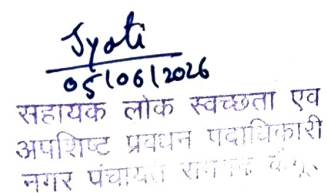 Jyoti
05/06/2026
सहायक लोक स्वच्छता एव
अपशिष्ट प्रवधन पदाधिकारी
नगर पंचायत